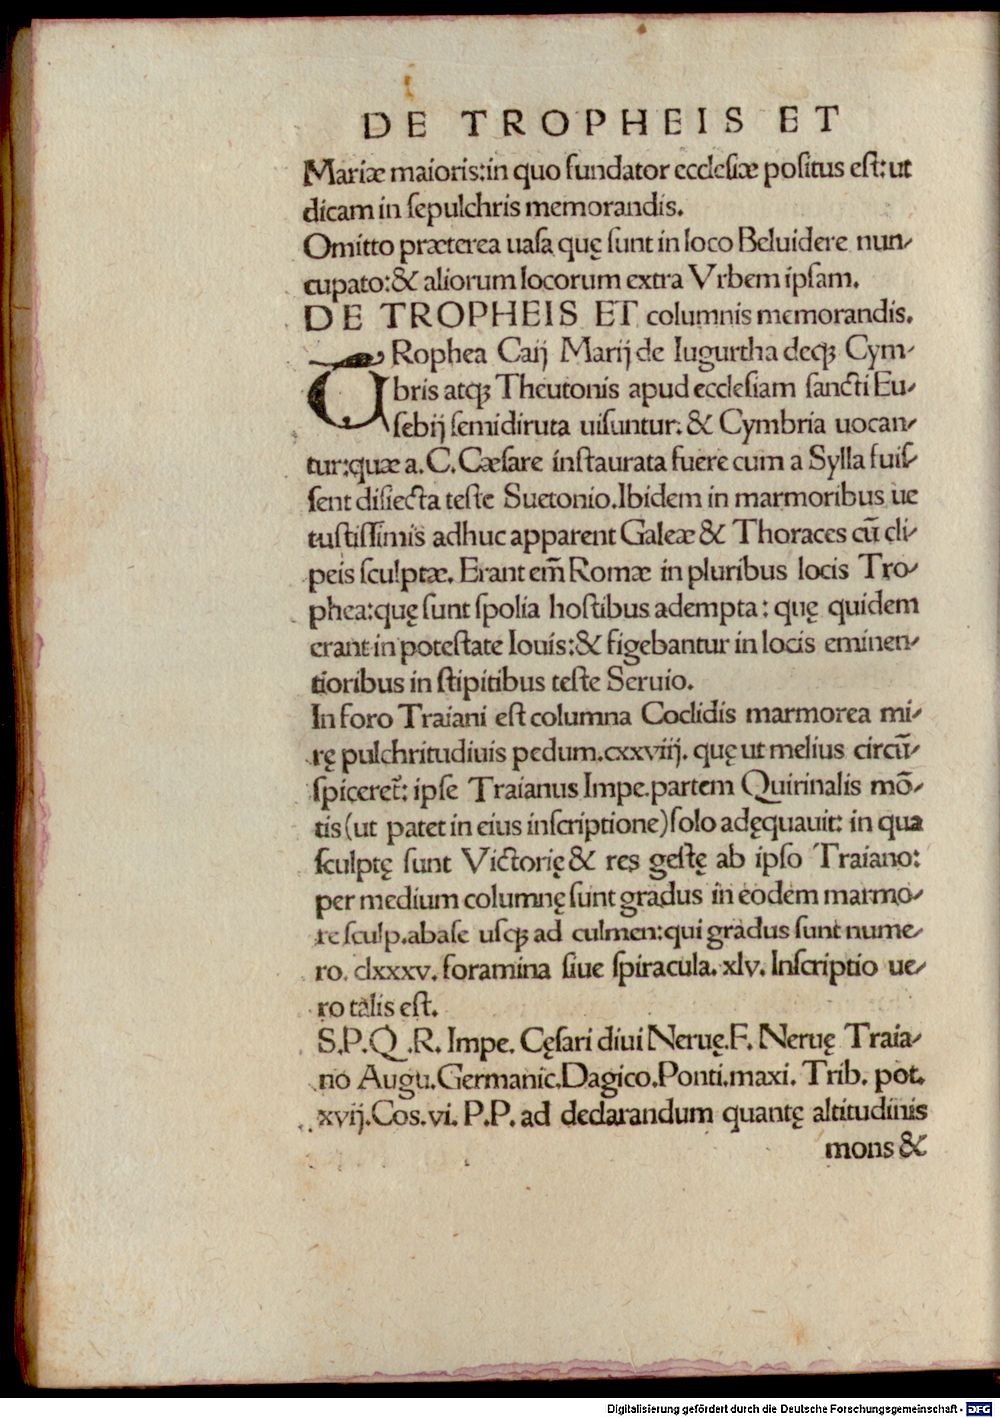 DE TROPHEIS ET
Mariæ maioris:in quo fundator ecclesiæ positus est:ut
dicam in sepulchris memorandis.
Omitto præterea uasa quę sunt in loco Beluidere nun/
cupato:& aliorum locorum extra Vrbem ipsam.
DE TROPHEIS ET columnis memorandis.
TRophea Caij Marij de Iugurtha deqꝫ Cym/
bris atqꝫ Theutonis apud ecclesiam sancti Eu/
sebij semidiruta uisuntur. & Cymbria uocan/
tur:quæ a. C. Cæsare instaurata fuere cum a Sylla fuis/
sent disiecta teste Suetonio. Ibidem in marmoribus ue
tustissimis adhuc apparent Galeæ & Thoraces cū cli/
peis sculptæ. Erant em̄ Romæ in pluribus locis Tro/
phea:quę sunt spolia hostibus adempta: quę quidem
erant in potestate Iouis:& figebantur in locis eminen/
tioribus in stipitibus teste Seruio.
In foro Traiani est columna Coclidis marmorea mi/
rę pulchritudiuis pedum.cxxviij. quę ut melius circū/
spiceret̄: ipse Traianus Impe.partem Quirinalis mō/
tis(ut patet in eius inscriptione)solo adęquauit: in qua
sculptę sunt Victorię & res gestę ab ipso Traiano:
per medium columnę sunt gradus in eodem marmo/
re sculp.abase usqꝫ ad culmen:qui gradus sunt nume/
ro. clxxxv. foramina siue spiracula. xlv. Inscriptio ue/
ro talis est.
S.P.Q .R. Impe. Cęsari diui Neruę.F. Neruę Traia/
no Augu.Germanic.Dagico.Ponti.maxi. Trib. pot.
xvij.Cos.vi. P.P. ad declarandum quantę altitudinis
mons &
Digitalisierung gefördert durch die Deutsche Forschungsgemeinschaft - DFG